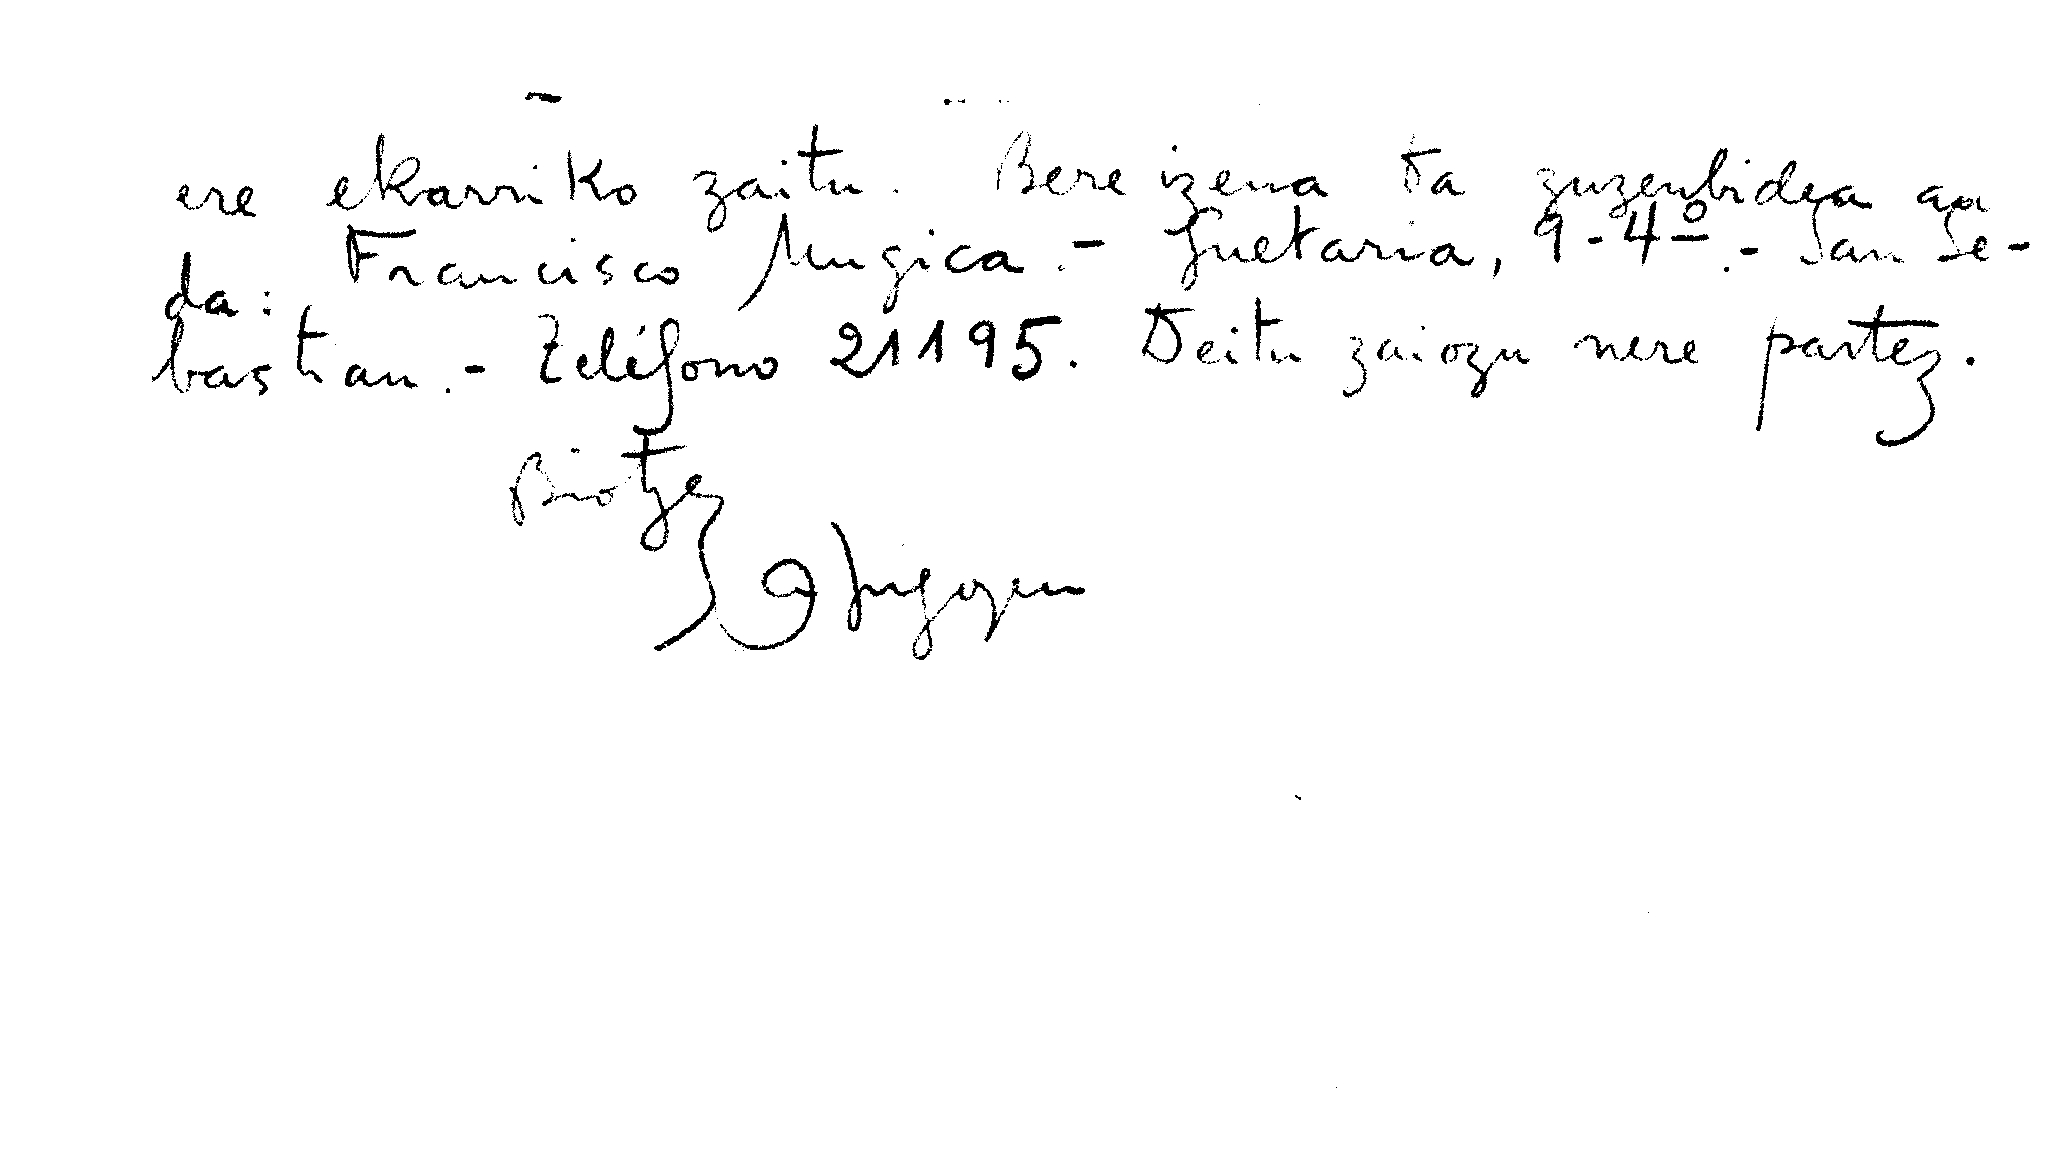 ere ekarriko zaitu. Bere izena ta zuzenbidea au
da: Francisco Mugica.- Guetaria, 9-4º.- San Se-
bastian.- Teléfono 21195. Deitu zaiozu nere partez.
Biotzez